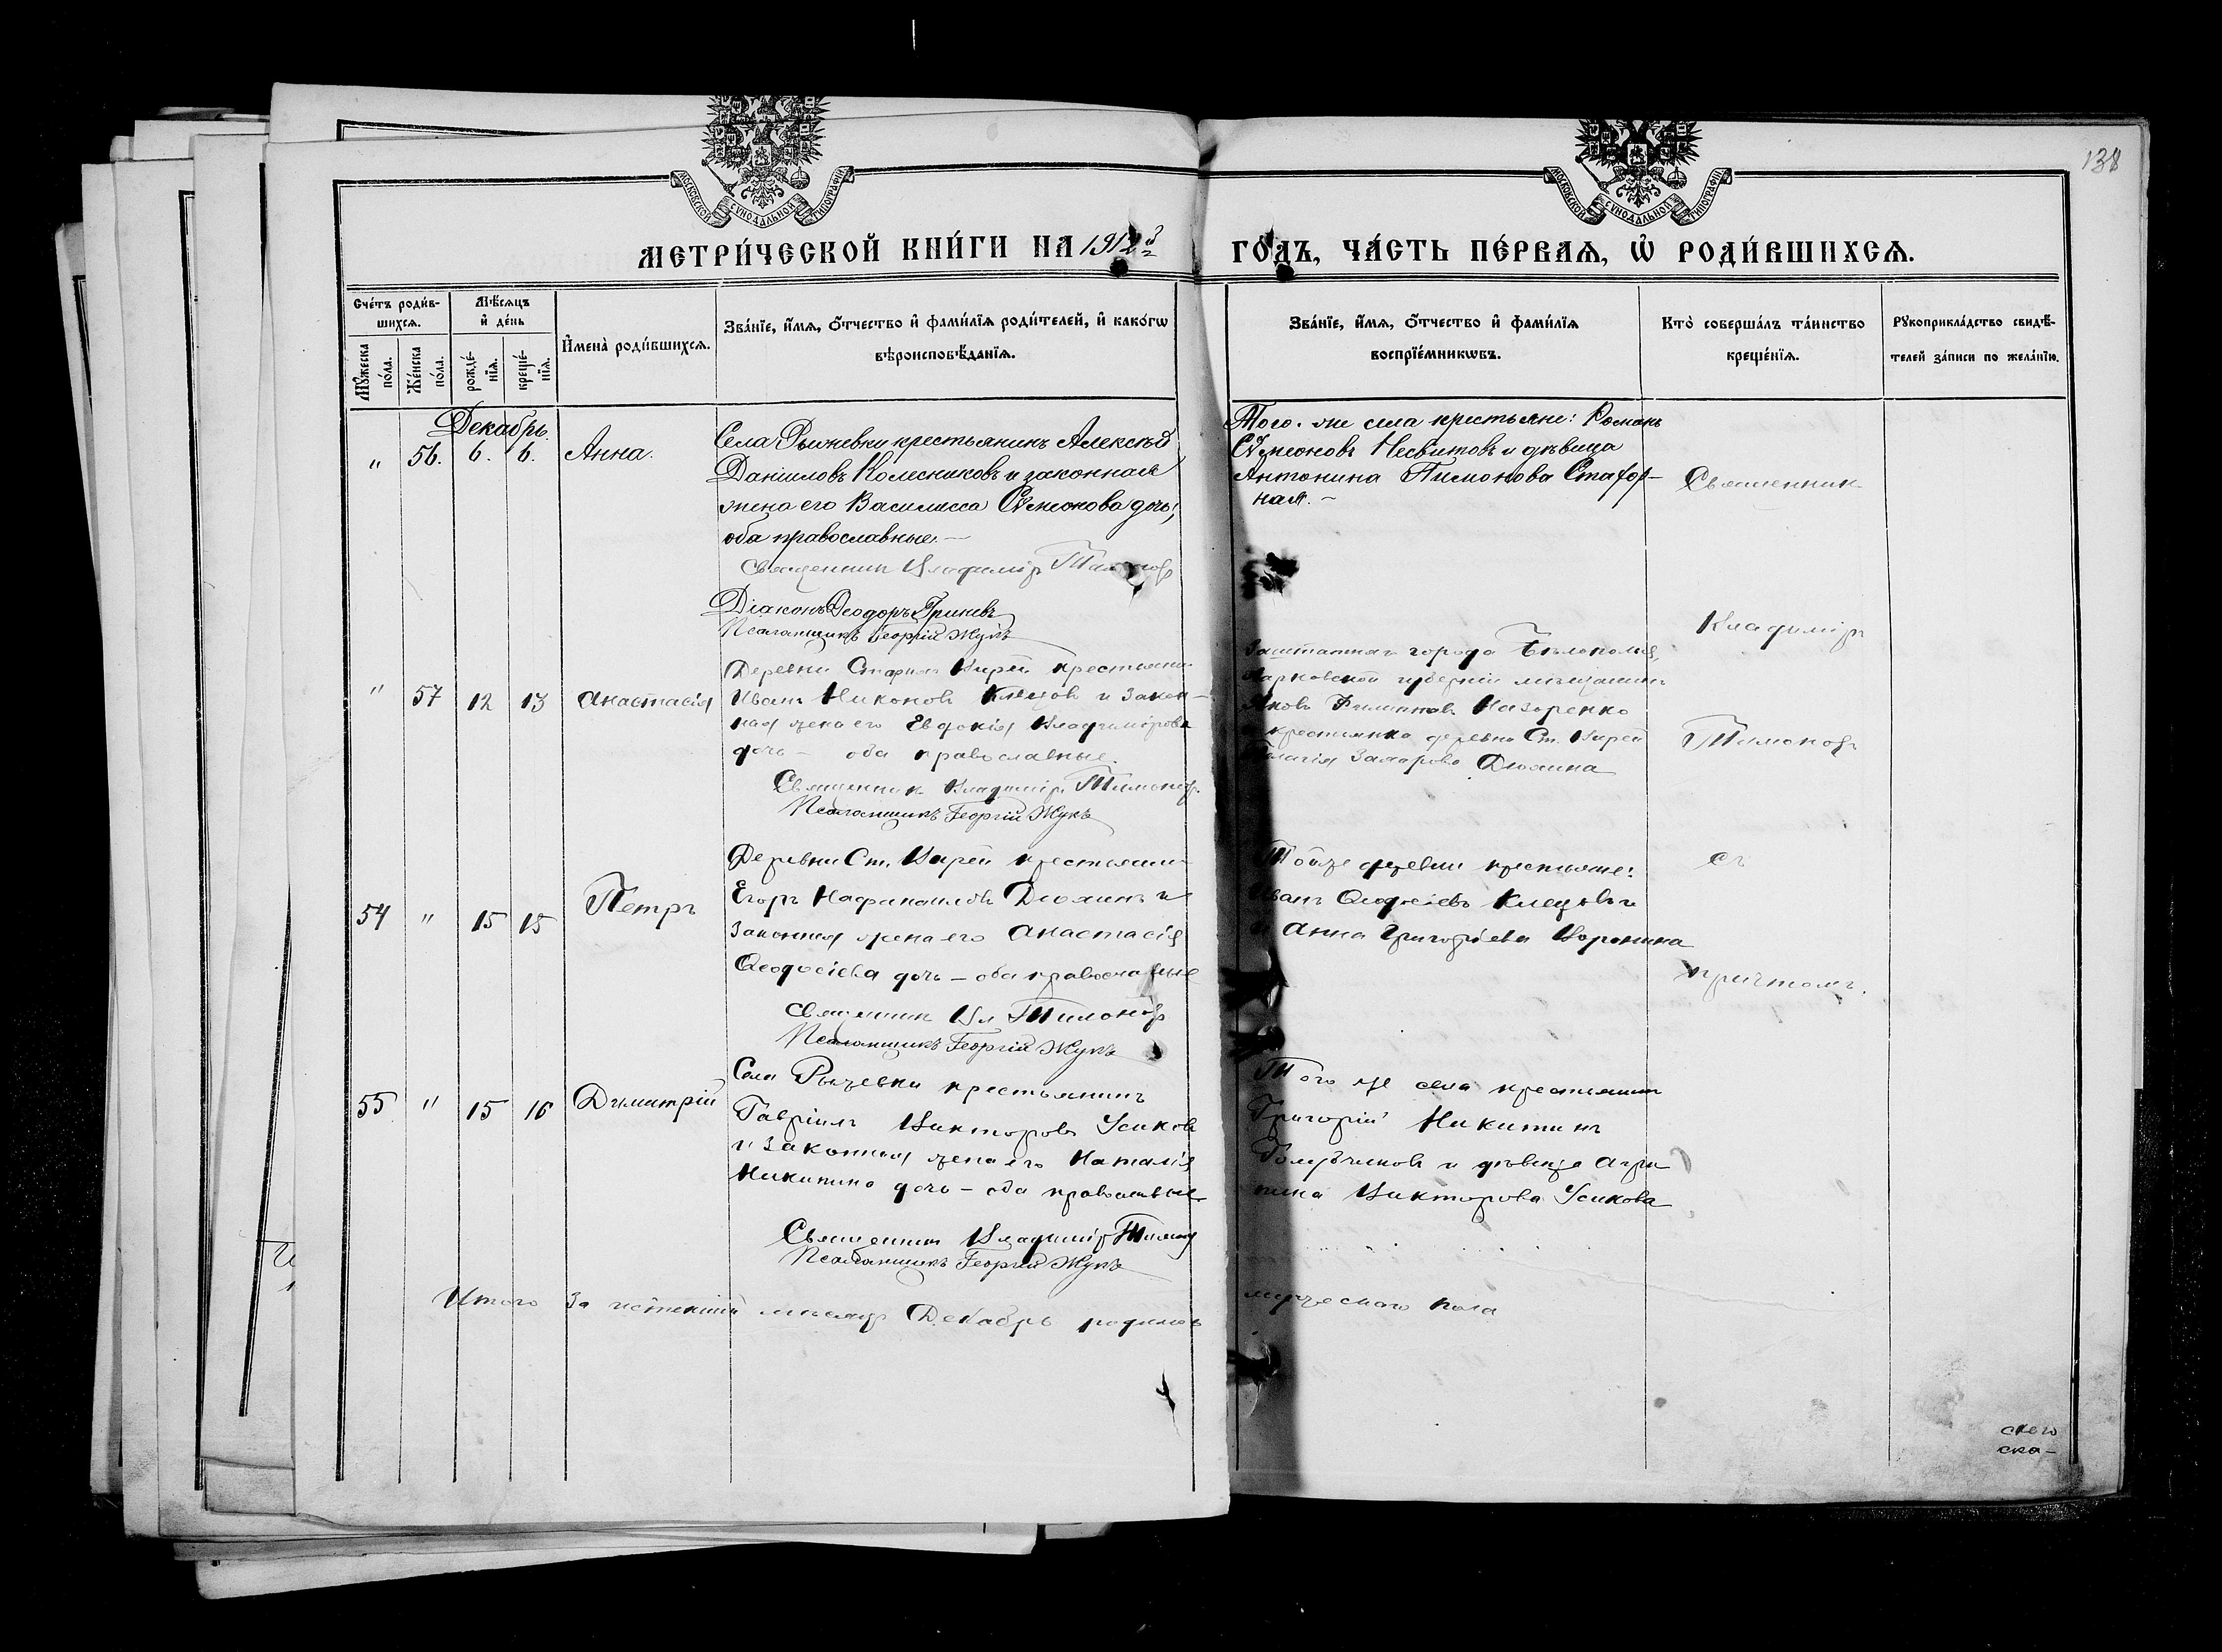 138
МОСКОВСКОЙ СѴНОДАЛЬНОЙ ТИПОГРАФІИ
МОСКОВСКОЙ СѴНОДАЛЬНОЙ ТИПОГРАФІИ
МЕТРИ́ЧЕСКОЙ КНИ́ГИ НА 1912й ГО́ДЪ, ЧА́СТЬ ПЕ́РВАѦ, Ѡ҆ РОДИ́ВШИХСѦ.
Сче́тъ роди́в-
шихсѧ.
Мꙋ́жеска по́ла.
Же́нска по́ла.
Мѣ́сѧцъ и҆ де́нь
рожде́-нїѧ.
креще́-нїѧ.
И҆мена̀ роди́вшихсѧ.
Зва́нїе, и҆́мѧ, ѻ҆́тчество и҆ фами́лїѧ роди́телей, и҆ како́гѡ
вѣроисповѣ́данїѧ.
Зва́нїе, и҆́мѧ, ѻ҆́тчество и҆ фами́лїѧ
воспрїе́мникѡвъ.
Кто̀ соверша́лъ та́инство
креще́нїѧ.
Рꙋкоприкла́дство свидѣ́-
телей за́писи по жела́нїю.
Декабрь.
" 56. 6. 6. Анна.
Села Рыжевки крестьянинъ Алексѣй
Даніиловъ Колесниковъ и законная
жена его Василисса Сѵмеонова дочь,
оба православные. —
Священникъ Владиміръ Тимоновъ
Діаконъ Ѳеодоръ Гриневъ
Псаломщикъ Георгій Жукъ
Того-же села крестьяне: Романъ
Сѵмеоновъ Несвитовъ и дѣвица
Антонина Пимонова
ная. —
" 57 12 13 Анастасія
Деревни Старыхъ Вирей крестьянинъ
Иванъ Никоновъ Клецовъ и закон-
ная жена его Евдокія Владимірова
дочь — оба православные.
Священникъ Владиміръ Тимоновъ
Псаломщикъ Георгій Жукъ
Заштатнаго города Бѣлополья,
Харьковской губерніи мѣщанинъ
Яковъ Филипповъ Назаренко
и крестьянка деревни Ст. Вирей
Пелагія Захарова Дюмина
54 " 15 15 Петръ
Деревни Ст. Вирей крестьянинъ
Егоръ Нафанаиловъ Дюминъ и
законная жена его Анастасія
Ѳеодосіева дочь — оба православные
Священникъ Вл Тимоновъ
Псаломщикъ Георгій Жукъ
Тойже деревни крестьяне:
Иванъ Ѳеодосіевъ Клецовъ и
и Анна Григоріева Воронина
55 " 15 16 Димитрій
Села Рыжевки крестьянинъ
Гавріилъ Викторовъ Усиковъ
и законная жена его Наталія
Никитина дочь — оба православные
Священникъ Владиміръ Тимоновъ
Псаломщикъ Георгій Жукъ
Того же села крестьянинъ
Григорій Никитинъ
и дѣвица Агрип
пина Викторова Усикова
Священникъ
Владиміръ
Тимоновъ
съ
причтомъ.
Итого за истекшій мѣсяцъ Декабрь родилось
мужескаго пола
скаго
ска-